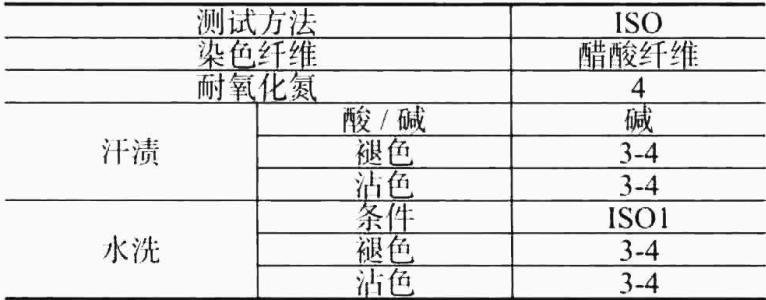 测试方法 ISO
染色纤维 醋酸纤维
耐氧化氮 4
汗渍 酸 / 碱 碱
褪色 3-4
沾色 3-4
水洗 条件 ISO1
褪色 3-4
沾色 3-4